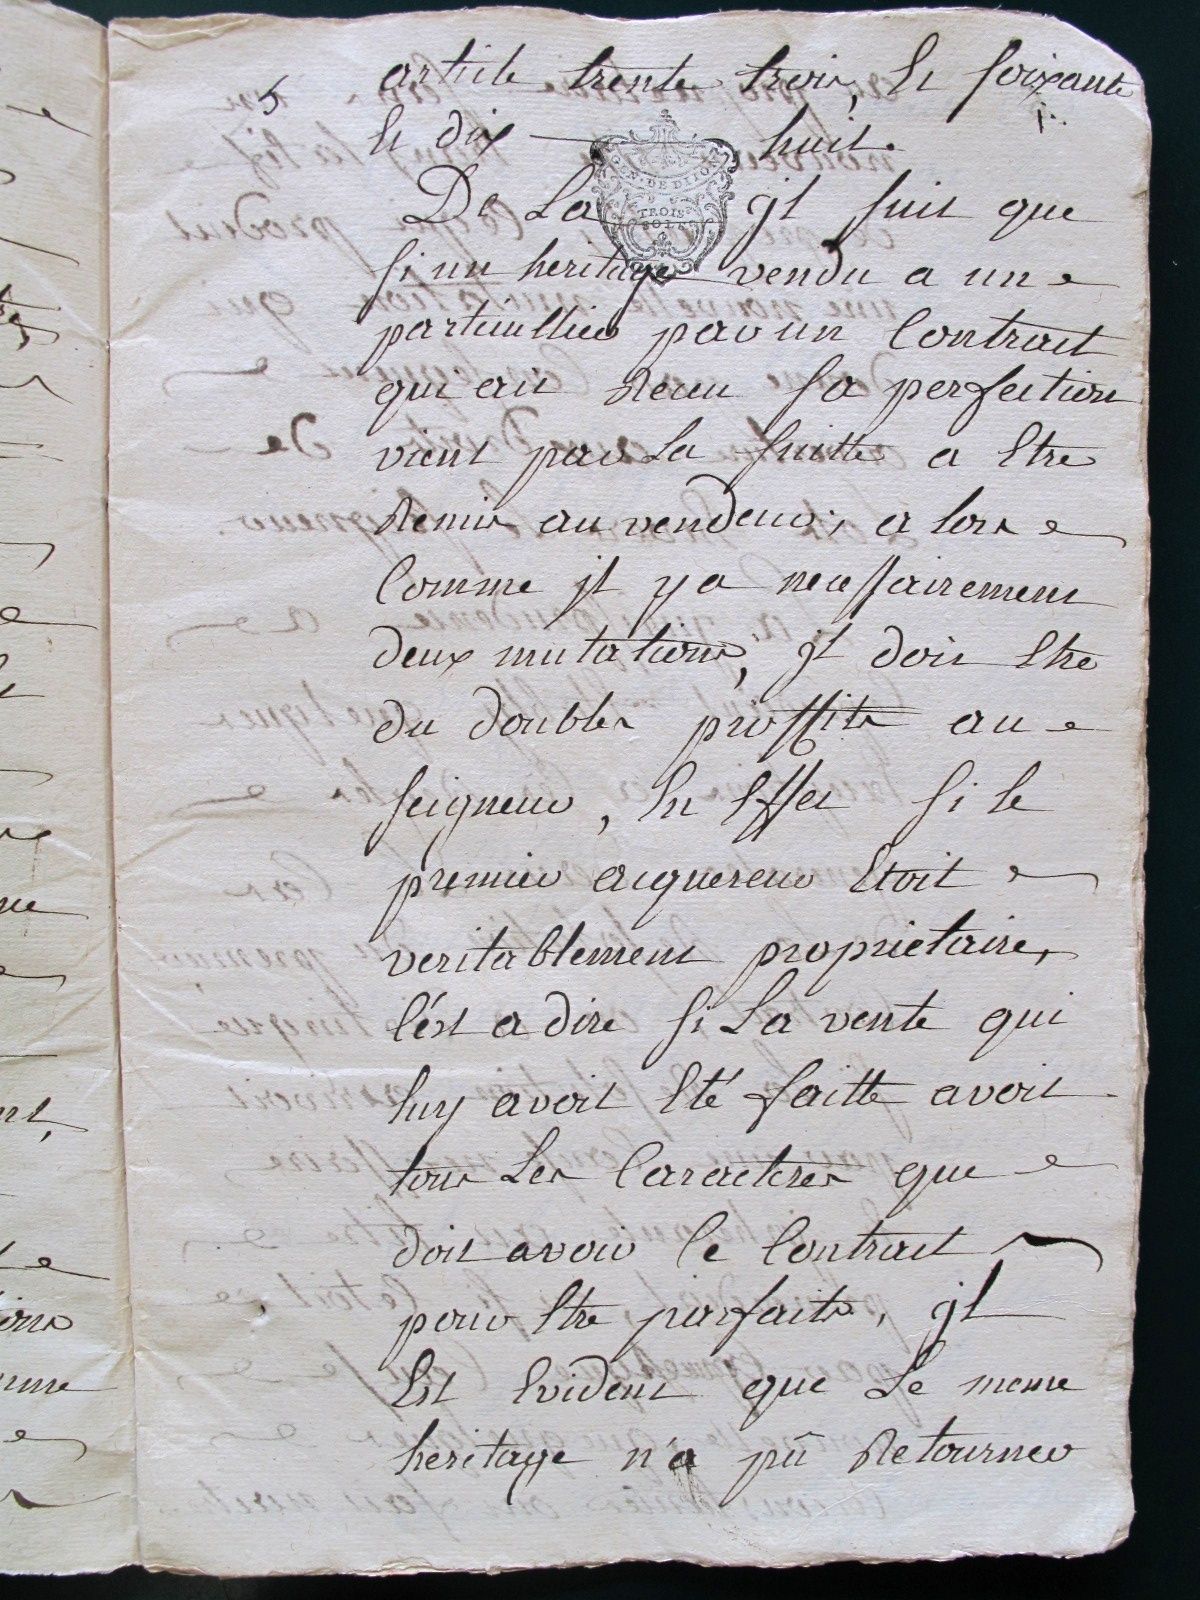 5
article trente trois, et soixante
et dix huit.
GEN. DE DIJON
TROIS
SOLS
De La jl suit que
si un heritage vendu a un
particullier par un Contract
qui ait Receu sa perfection
vient par La suitte a Etre
Remis au vendeur, alors
Comme jl y a necessairement
deux mutations, jl doit Etre
du doubles proffits au
seigneur, En Effet si le
premier acquereur Etoit
veritablement proprietaire,
C'est a dire si La vente qui
luy avoit Eté faitte avoit
tous Les Caracteres que
doit avoir Ce Contract
pour Etre parfaits, jl
Est Evident que Le meme
heritage n'a pû Retourner